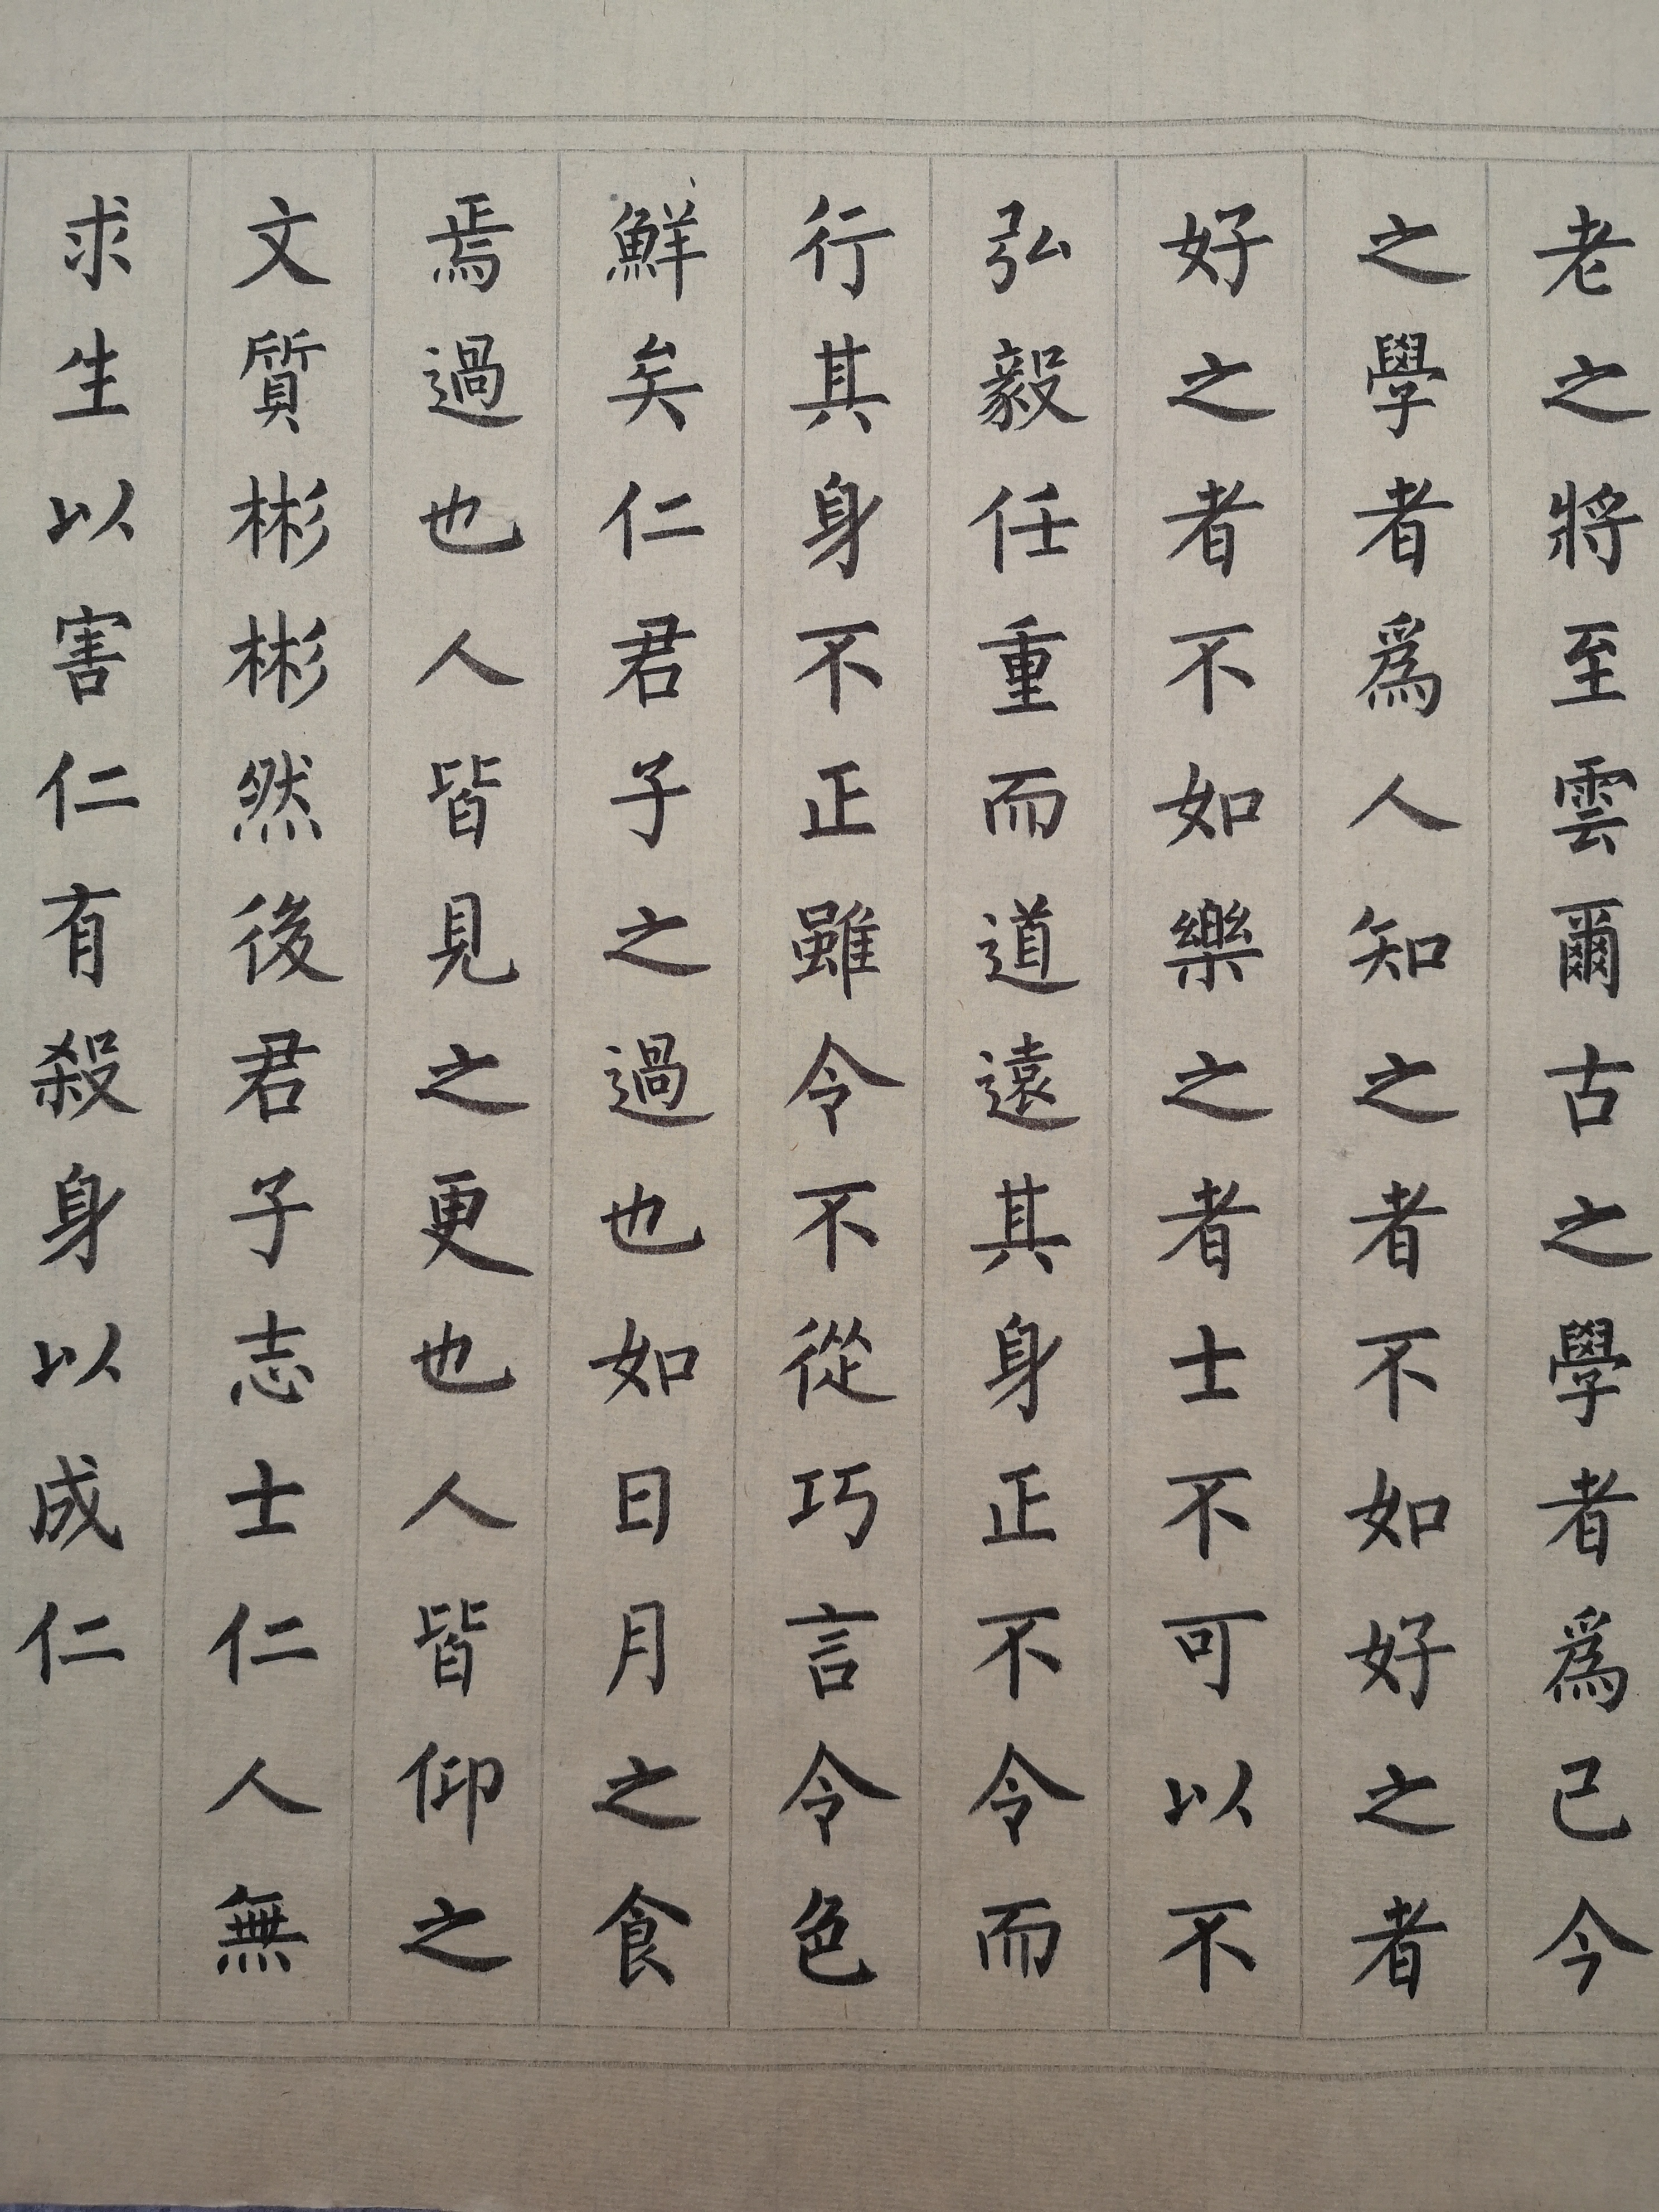 老之將至雲爾古之學者爲己今
之學者爲人知之者不如好之者
好之者不如樂之者士不可以不
弘毅任重而道遠其身正不令而
行其身不正雖令不從巧言令色
鮮矣仁君子之過也如日月之食
焉過也人皆見之更也人皆仰之
文質彬彬然後君子志士仁人無
求生以害仁有殺身以成仁